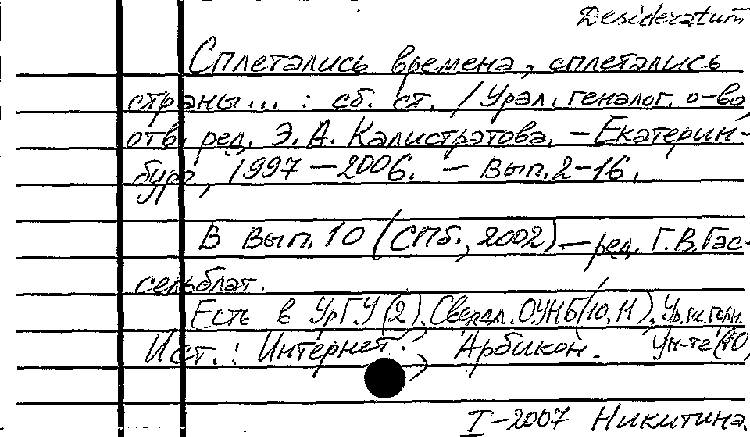 Desideratum
Сплетались времена, сплетались
страны... : сб. ст. / Урал. генеалог. о-во
отв. ред. Э. А. Калистратова. – Екатерин-
бург, 1997 – 2006. – Вып. 2–16.
В вып. 10 (СПб., 2002) – ред. Г. В. Гас-
сельблат.
Есть в УрГУ (2), Свердл. ОУНБ (10, 11),
Ист.: Интернет. Арбикон. Ун-те (10)
I-2007 Никитина.